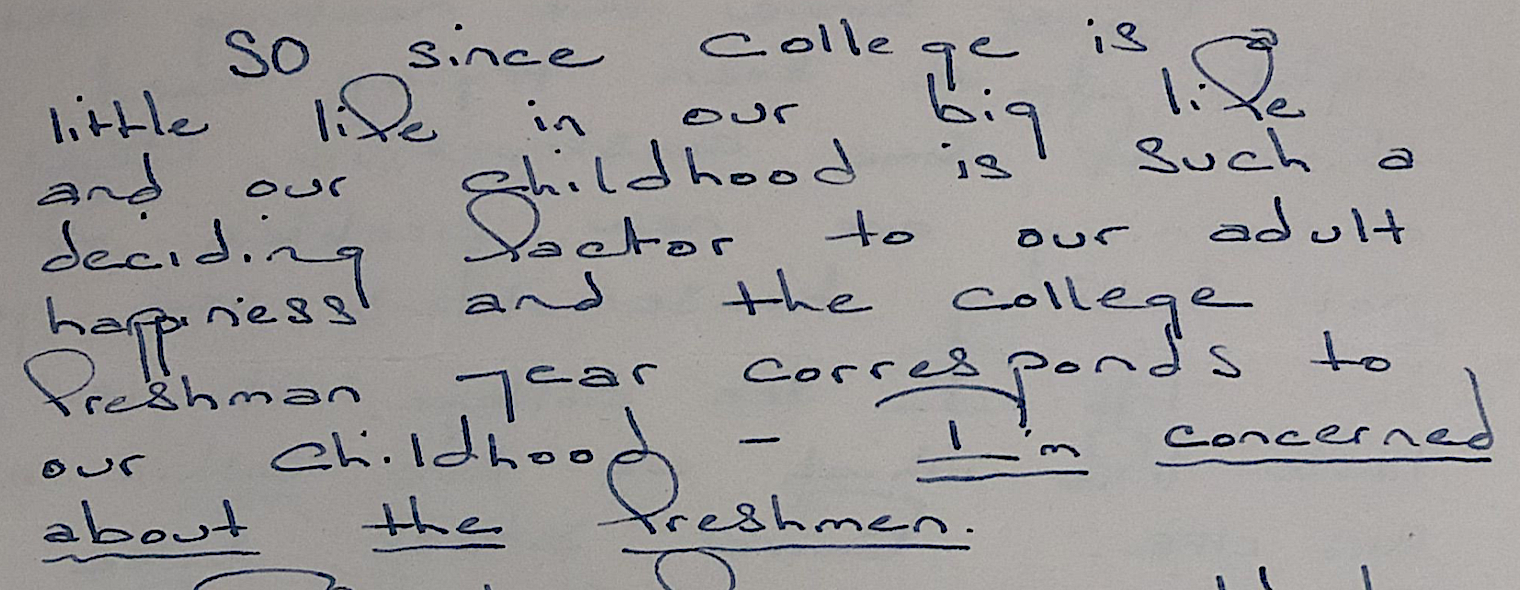 So since college is a
little life in our big life
and our childhood is such a
deciding factor to our adult
happiness and the college
freshman year corresponds to
our childhood - I'm concerned
about the freshmen.